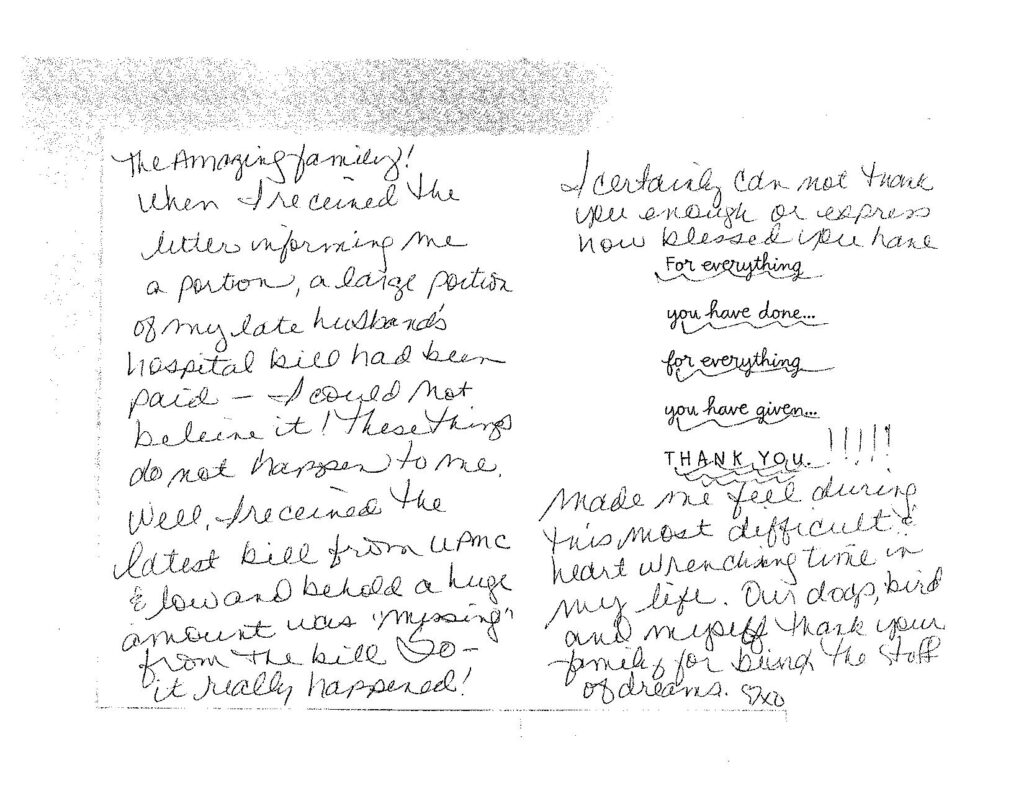 The Amazing family!
When I received the
letter informing me
a portion, a large portion
of my late husband's
hospital bill had been
paid – I could not
believe it! These things
do not happen to me.
Well, I received the
latest bill from UPMC
& low and behold a huge
amount was "missing"
from the bill So –
it really happened!
I certainly can not thank
you enough or express
how blessed you have
For everything
you have done...
for everything
you have given...
THANK YOU. !!!!!
made me feel during
this most difficult &
heart wrenching time in
my life. Our dogs, bird
and myself thank your
family for being the stuff
of dreams.